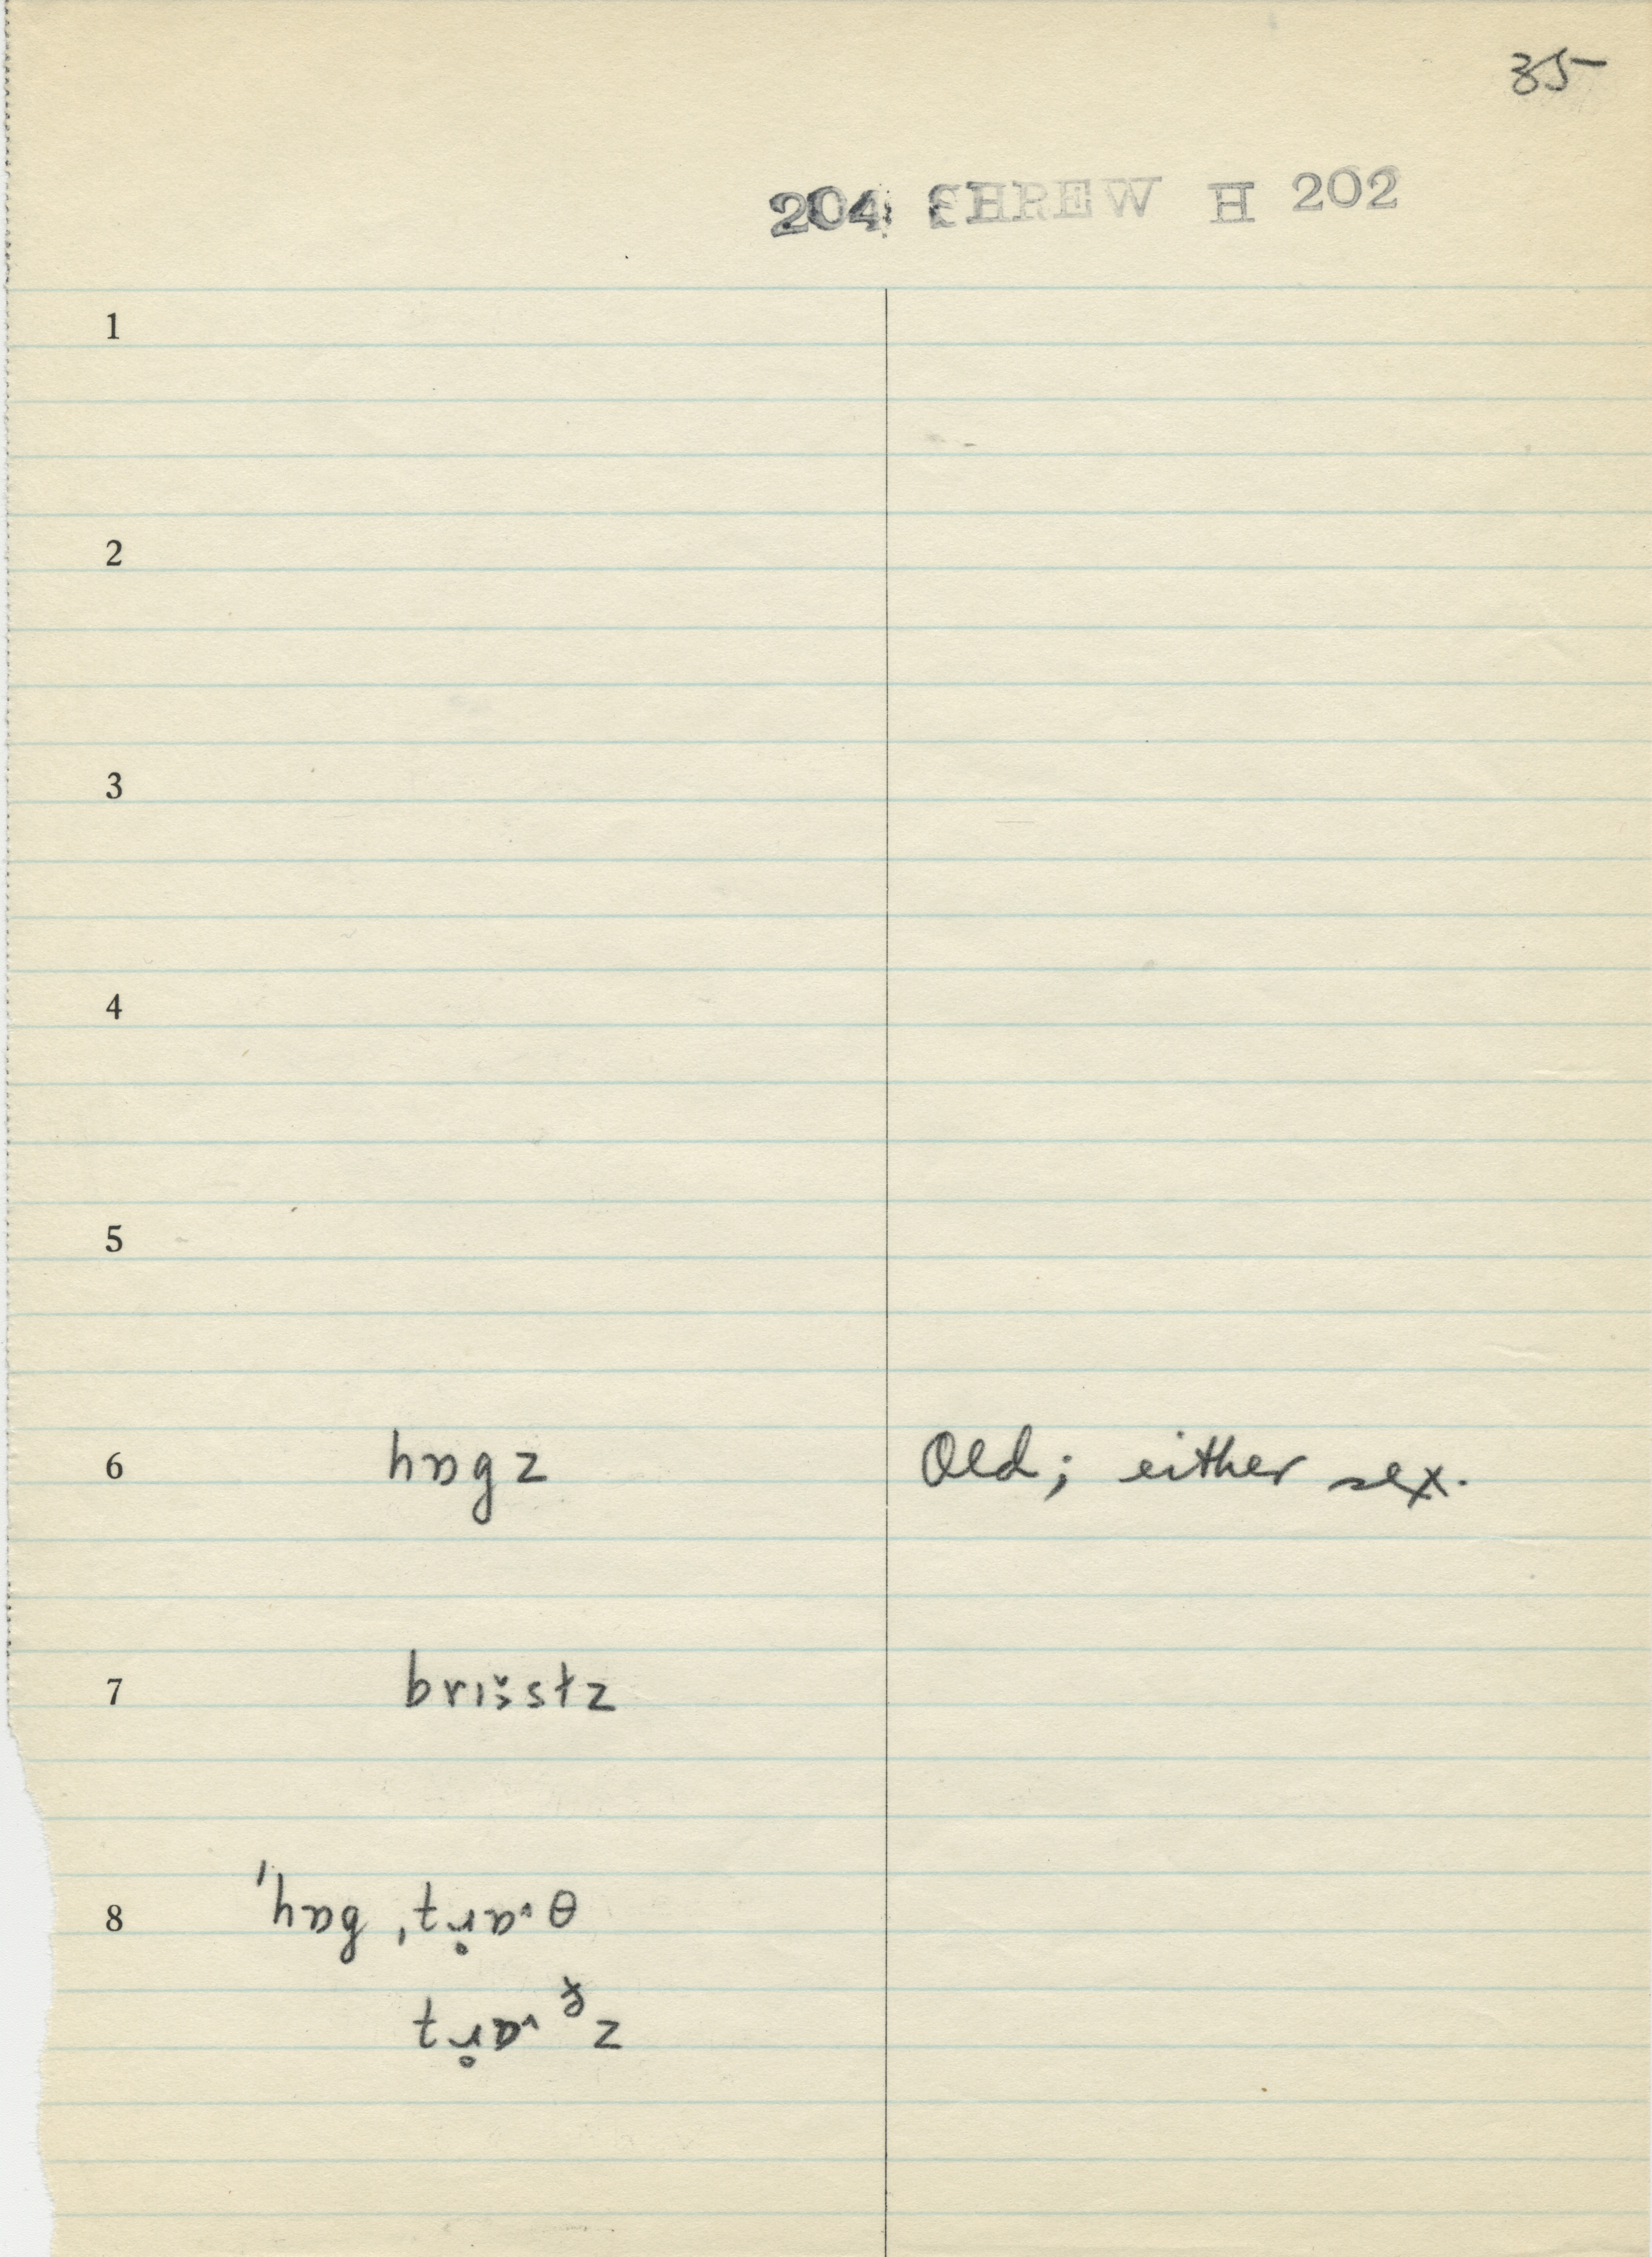 35
204 SHREW H 202
1
2
3
4
5
6 hɒgz Old; either sex.
7
8 ˈhɒgˌtɹ̥ɒ˅θ
tɹ̥ɒ˅ðz